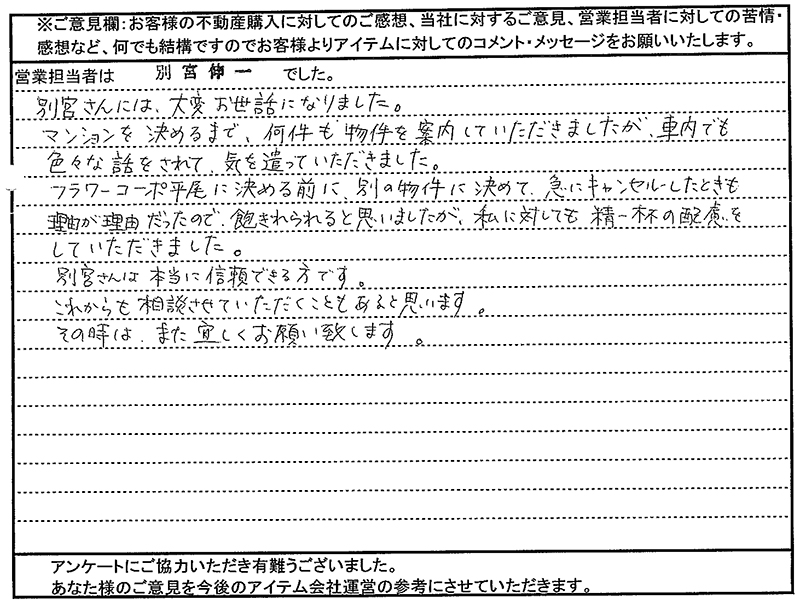 ※ご意見欄:お客様の不動産購入に対してのご感想、当社に対するご意見、営業担当者に対しての苦情・
感想など、何でも結構ですのでお客様よりアイテムに対してのコメント・メッセージをお願いいたします。
営業担当者は 別宮伸一 でした。
別宮さんには、大変お世話になりました。
マンションを決めるまで、何件も物件を案内していただきましたが、車内でも
色々な話をされて、気を遣っていただきました。
フラワーコーポ平尾に決める前に、別の物件に決めて、急にキャンセルしたときも
理由が理由だったので、飽きれられると思いましたが、私に対しても精一杯の配慮を
していただきました。
別宮さんは本当に信頼できる方です。
これからも相談させていただくこともあると思います。
その時は、また宜しくお願い致します。
アンケートにご協力いただき有難うございました。
あなた様のご意見を今後のアイテム会社運営の参考にさせていただきます。